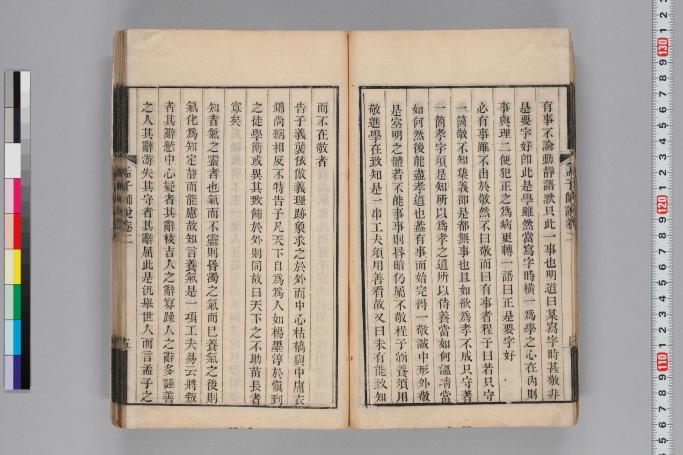 有事不論動靜語默只此一事也明道曰某寫字時甚敬非
是要字好即此是學雖然當寫字時橫一為學之心在內則
事與理二便犯正之為病更轉一語曰正是要字好
必有事雖不由於敬然不曰敬而曰有事者程子曰若只守
一箇敬不知集義卻是都無事也且如欲為孝不成只守著
一箇孝字須是知所以為孝之道所以侍養當如何溫凊當
如何然後能盡孝道也蓋有事而始完得一敬誠中形外敬
是空明之體若不能事事則昏暗仍屬不敬程子涵養須用
敬進學在致知是一串工夫須用善看故又曰未有能致知
而不在敬者
告子義襲依倣義理跡象求之於外而中心枯槁與中庸衣
錦尚絅相反不特告子凡天下自為為人如楊墨淳于慎到
之徒學術或異其致飾於外則同故曰天下之不助苗長者
寡矣
知者氣之靈者也氣而不靈則昏濁之氣而已養氣之後則
氣化為知定靜而能慮故知言養氣是一項工夫易云將叛
者其辭慙中心疑者其辭枝吉人之辭寡躁人之辭多誣善
之人其辭游失其守者其辭屈此是汎舉世人而言孟子之
孟子師說卷二